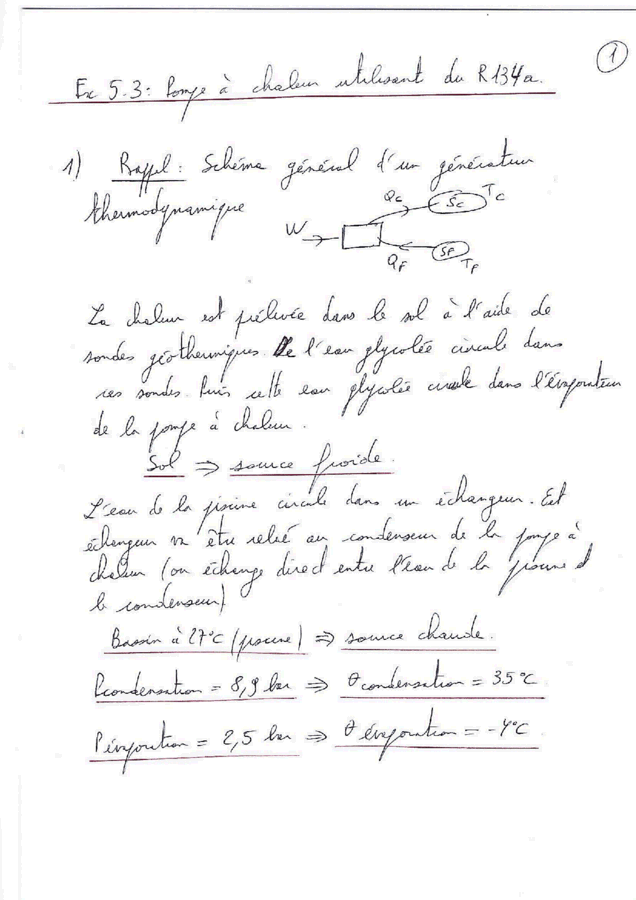 1
Ex 5.3: Pompe à chaleur utilisant du R134a.
1) Rappel: Schéma général d'un générateur
thermodynamique
Qc Sc Tc
W
QF SF TF
La chaleur est prélevée dans le sol à l'aide de
sondes géothermiques. De l'eau glycolée circule dans
ces sondes. Puis cette eau glycolée circule dans l'évaporateur
de la pompe à chaleur.
Sol ⇒ source froide.
L'eau de la piscine circule dans un échangeur. Cet
échangeur va être relié au condenseur de la pompe à
chaleur (ou échange direct entre l'eau de la piscine et
le condenseur)
Bassin à 27°C (piscine) ⇒ source chaude.
Pcondensation = 8,9 bar ⇒ θcondensation = 35°C
Pévaporation = 2,5 bar ⇒ θ évaporation = -4°C